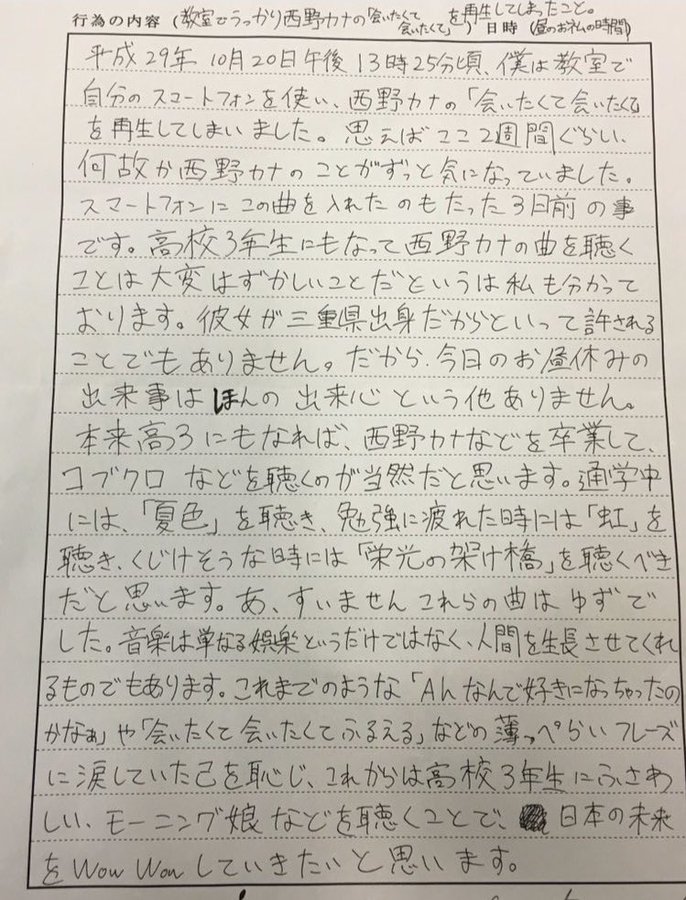 行為の内容（教室でうっかり西野カナの「会いたくて会いたくて」を再生してしまったこと。） 日時（昼のお休みの時間）
平成29年10月20日午後13時25分頃、僕は教室で
自分のスマートフォンを使い、西野カナの「会いたくて会いたくて」
を再生してしまいました。思えばここ2週間ぐらい、
何故か西野カナのことがずっと気になっていました。
スマートフォンにこの曲を入れたのもたった3日前の事
です。高校3年生にもなって西野カナの曲を聴く
ことは大変はずかしいことだというは私も分かって
おります。彼女が三重県出身だからといって許される
ことでもありません。だから、今日のお昼休みの
出来事はほんの出来心という他ありません。
本来高3にもなれば、西野カナなどを卒業して、
コブクロなどを聴くのが当然だと思います。通学中
には、「夏色」を聴き、勉強に疲れた時には「虹」を
聴き、くじけそうな時には「栄光の架け橋」を聴くべき
だと思います。あ、すいませんこれらの曲はゆずで
した。音楽は単なる娯楽というだけではなく、人間を生長させてくれ
るものでもあります。これまでのような「Ahなんで好きになっちゃったの
かなぁ」や「会いたくて会いたくてふるえる」などの薄っぺらいフレーズ
に涙していた己を恥じ、これからは高校3年生にふさわ
しい、モーニング娘などを聴くことで、日本の未来
をWow Wowしていきたいと思います。